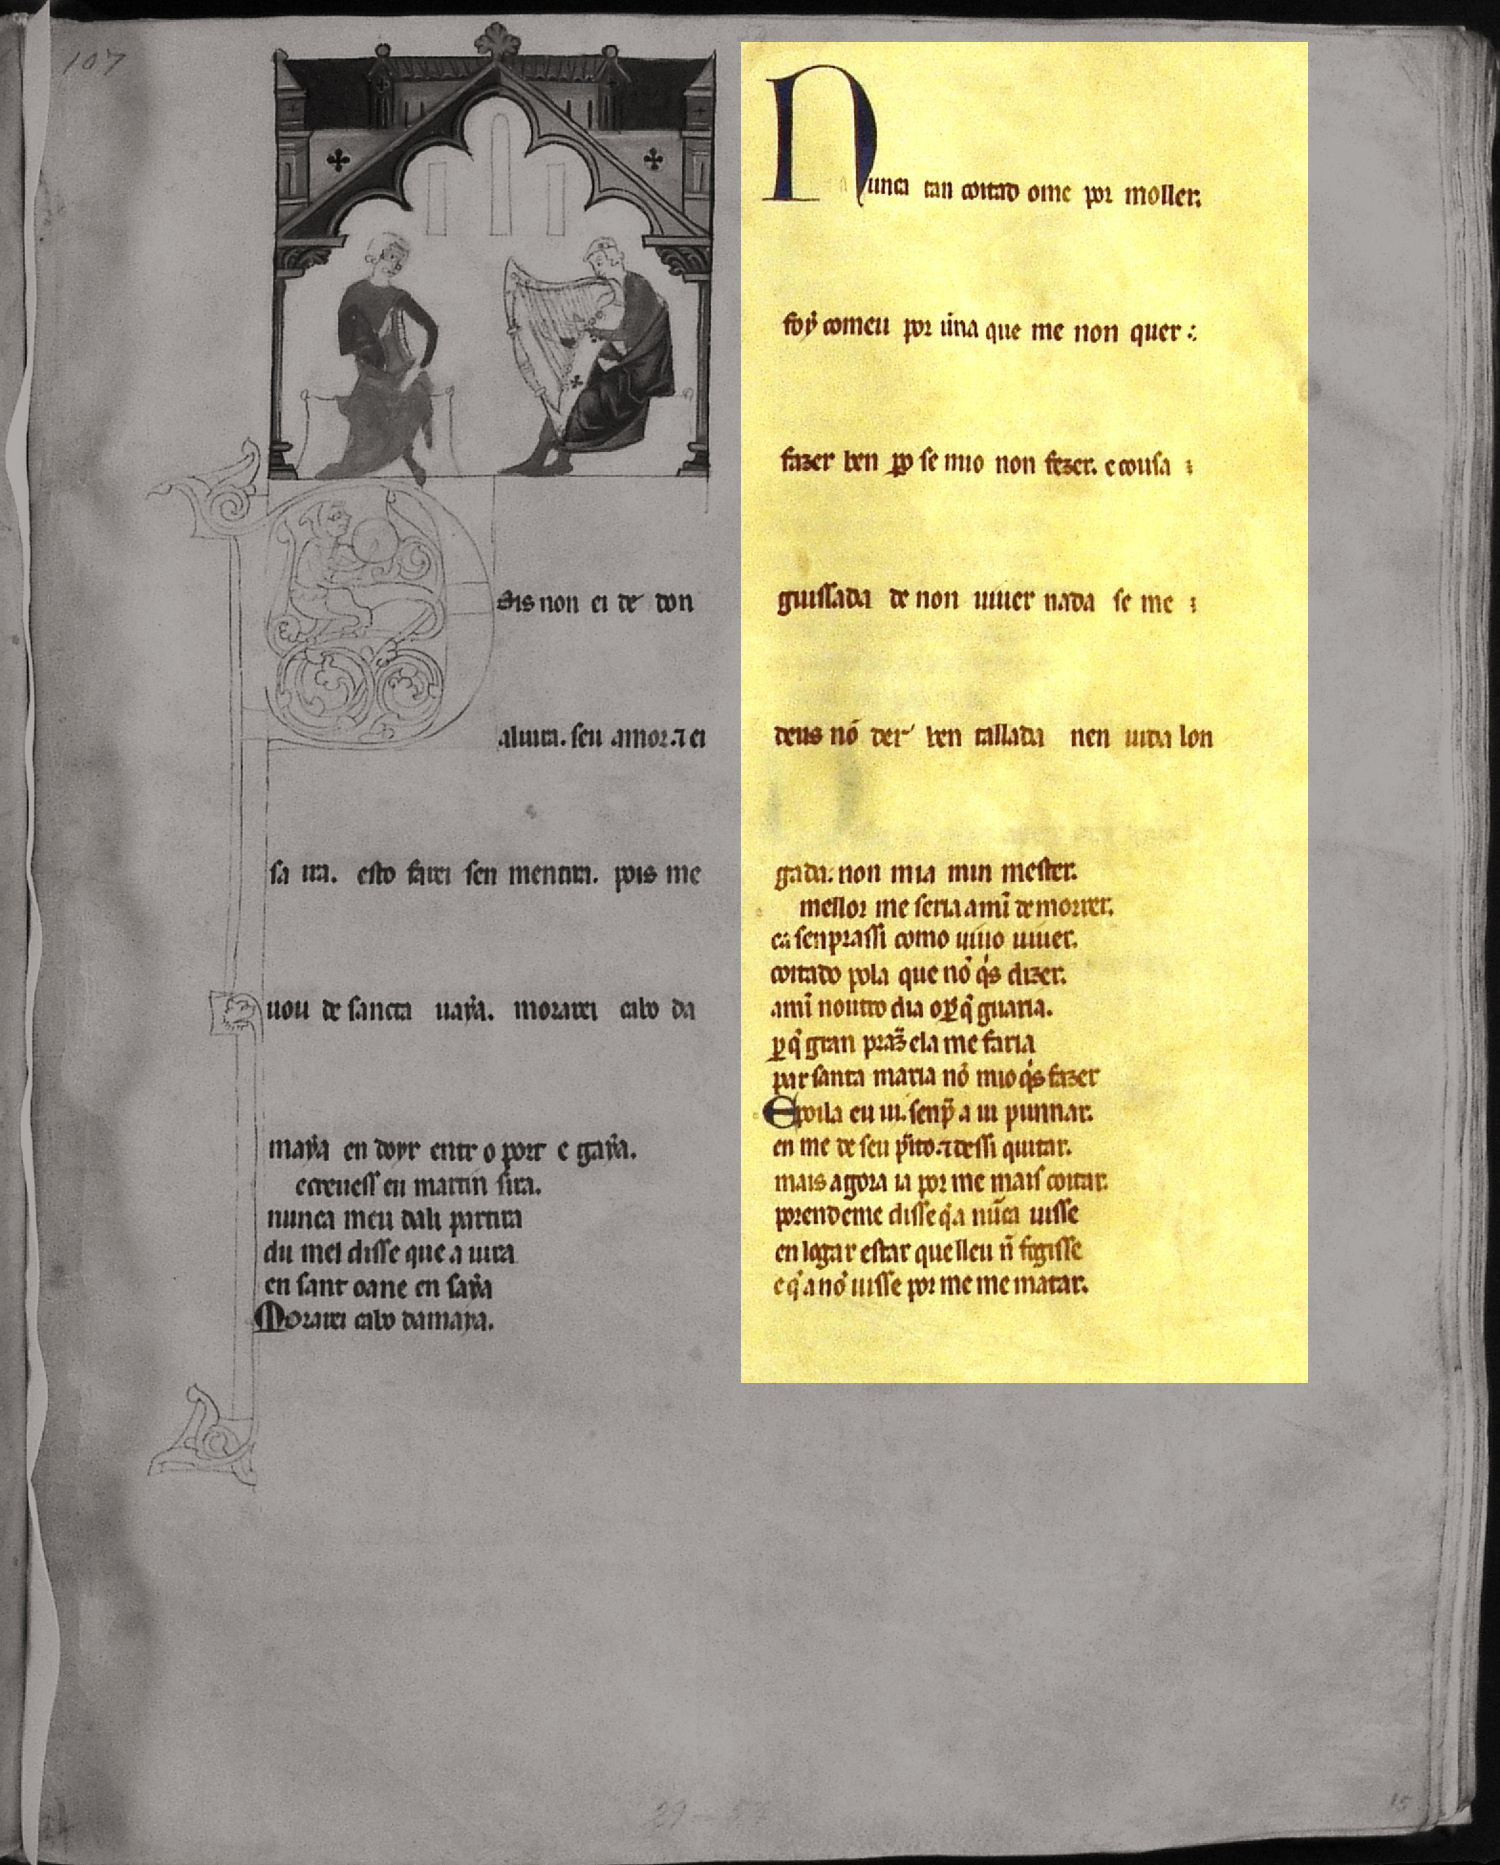 107
Ois non ei de don
aluira. seu amor. ⁊ ei
sa ira. esto farei sen mentira. pois me
uou de sancta uaẏa. morarei cabo da
maẏa en doyr entr o port e gaẏa.
creuess eu martin sira.
nunca meu dali partira
du mel disse que a uira
en sant oane en saẏa
Morarei cabo damaẏa.
Nunca tan coitad ome por moller.
foẏ comeu por ũna que me non quer :
fazer ben ꝑo se mio non fezer. e cousa :
guissada de non uiuer nada se me :
deus nõ der ben tallada nen uida lon
gada. non mia min mester.
mellor me seria amĩ de morrer.
ca senprassi como uiuo uiuer.
coitado pola que nõ q̇s dizer.
amĩ noutro dia oꝑq̇ guaria.
ꝑq̇ gran praz̃ ela me faria
par santa maria nõ mio q̇s fazer
Epoila eu ui. senp̃ a ui punnar.
en me de seu p̃ito. ⁊ dessi quitar.
mais agora ia por me mais coitar.
porendeme disse q̇a nũca uisse
en logar estar que lleu ñ fogisse
e q̇ a nõ uisse por me me matar.
15